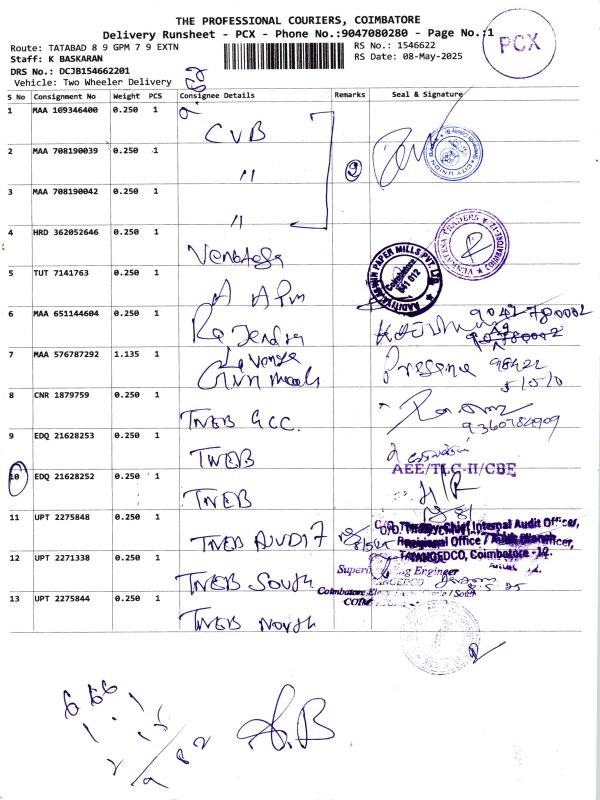 THE PROFESSIONAL COURIERS, COIMBATORE
Delivery Runsheet - PCX - Phone No.:9047080280 - Page No.:1
PCX
Route: TATABAD 8 9 GPM 7 9 EXTN
RS No.: 1546622
Staff: K BASKARAN
RS Date: 08-May-2025
DRS No.: DCJB154662201
Vehicle: Two Wheeler Delivery
9.82
S No Consignment No Weight PCS Consignee Details Remarks Seal & Signature
1 MAA 169346400 0.250 1 CVB
2 MAA 708190039 0.250 1 "
9
3 MAA 708190042 0.250 1 "
4 HRD 362052646 0.250 1 Venkatesa
VENKATESA TRADERS
5 TUT 7141763 0.250 1 A APM
PAPER MILLS PVT. LTD
Coimbatore
641 012
6 MAA 651144604 0.250 1 Rajendra
9047780002
7 MAA 576787292 1.135 1
98422
51010
8 CNR 1879759 0.250 1 TNEB GCC.
9360784909
9 EDQ 21628253 0.250 1 TNEB
AEE/TLC-II/CBE
10 EDQ 21628252 0.250 1 TNEB
11 UPT 2275848 0.250 1 TNEB AUDIT
Chief Internal Audit Officer,
Regional Office /
TANGEDCO, Coimbatore -12.
12 UPT 2271338 0.250 1 TNEB South
Engineer
/ South
13 UPT 2275844 0.250 1 TNEB North
A.B